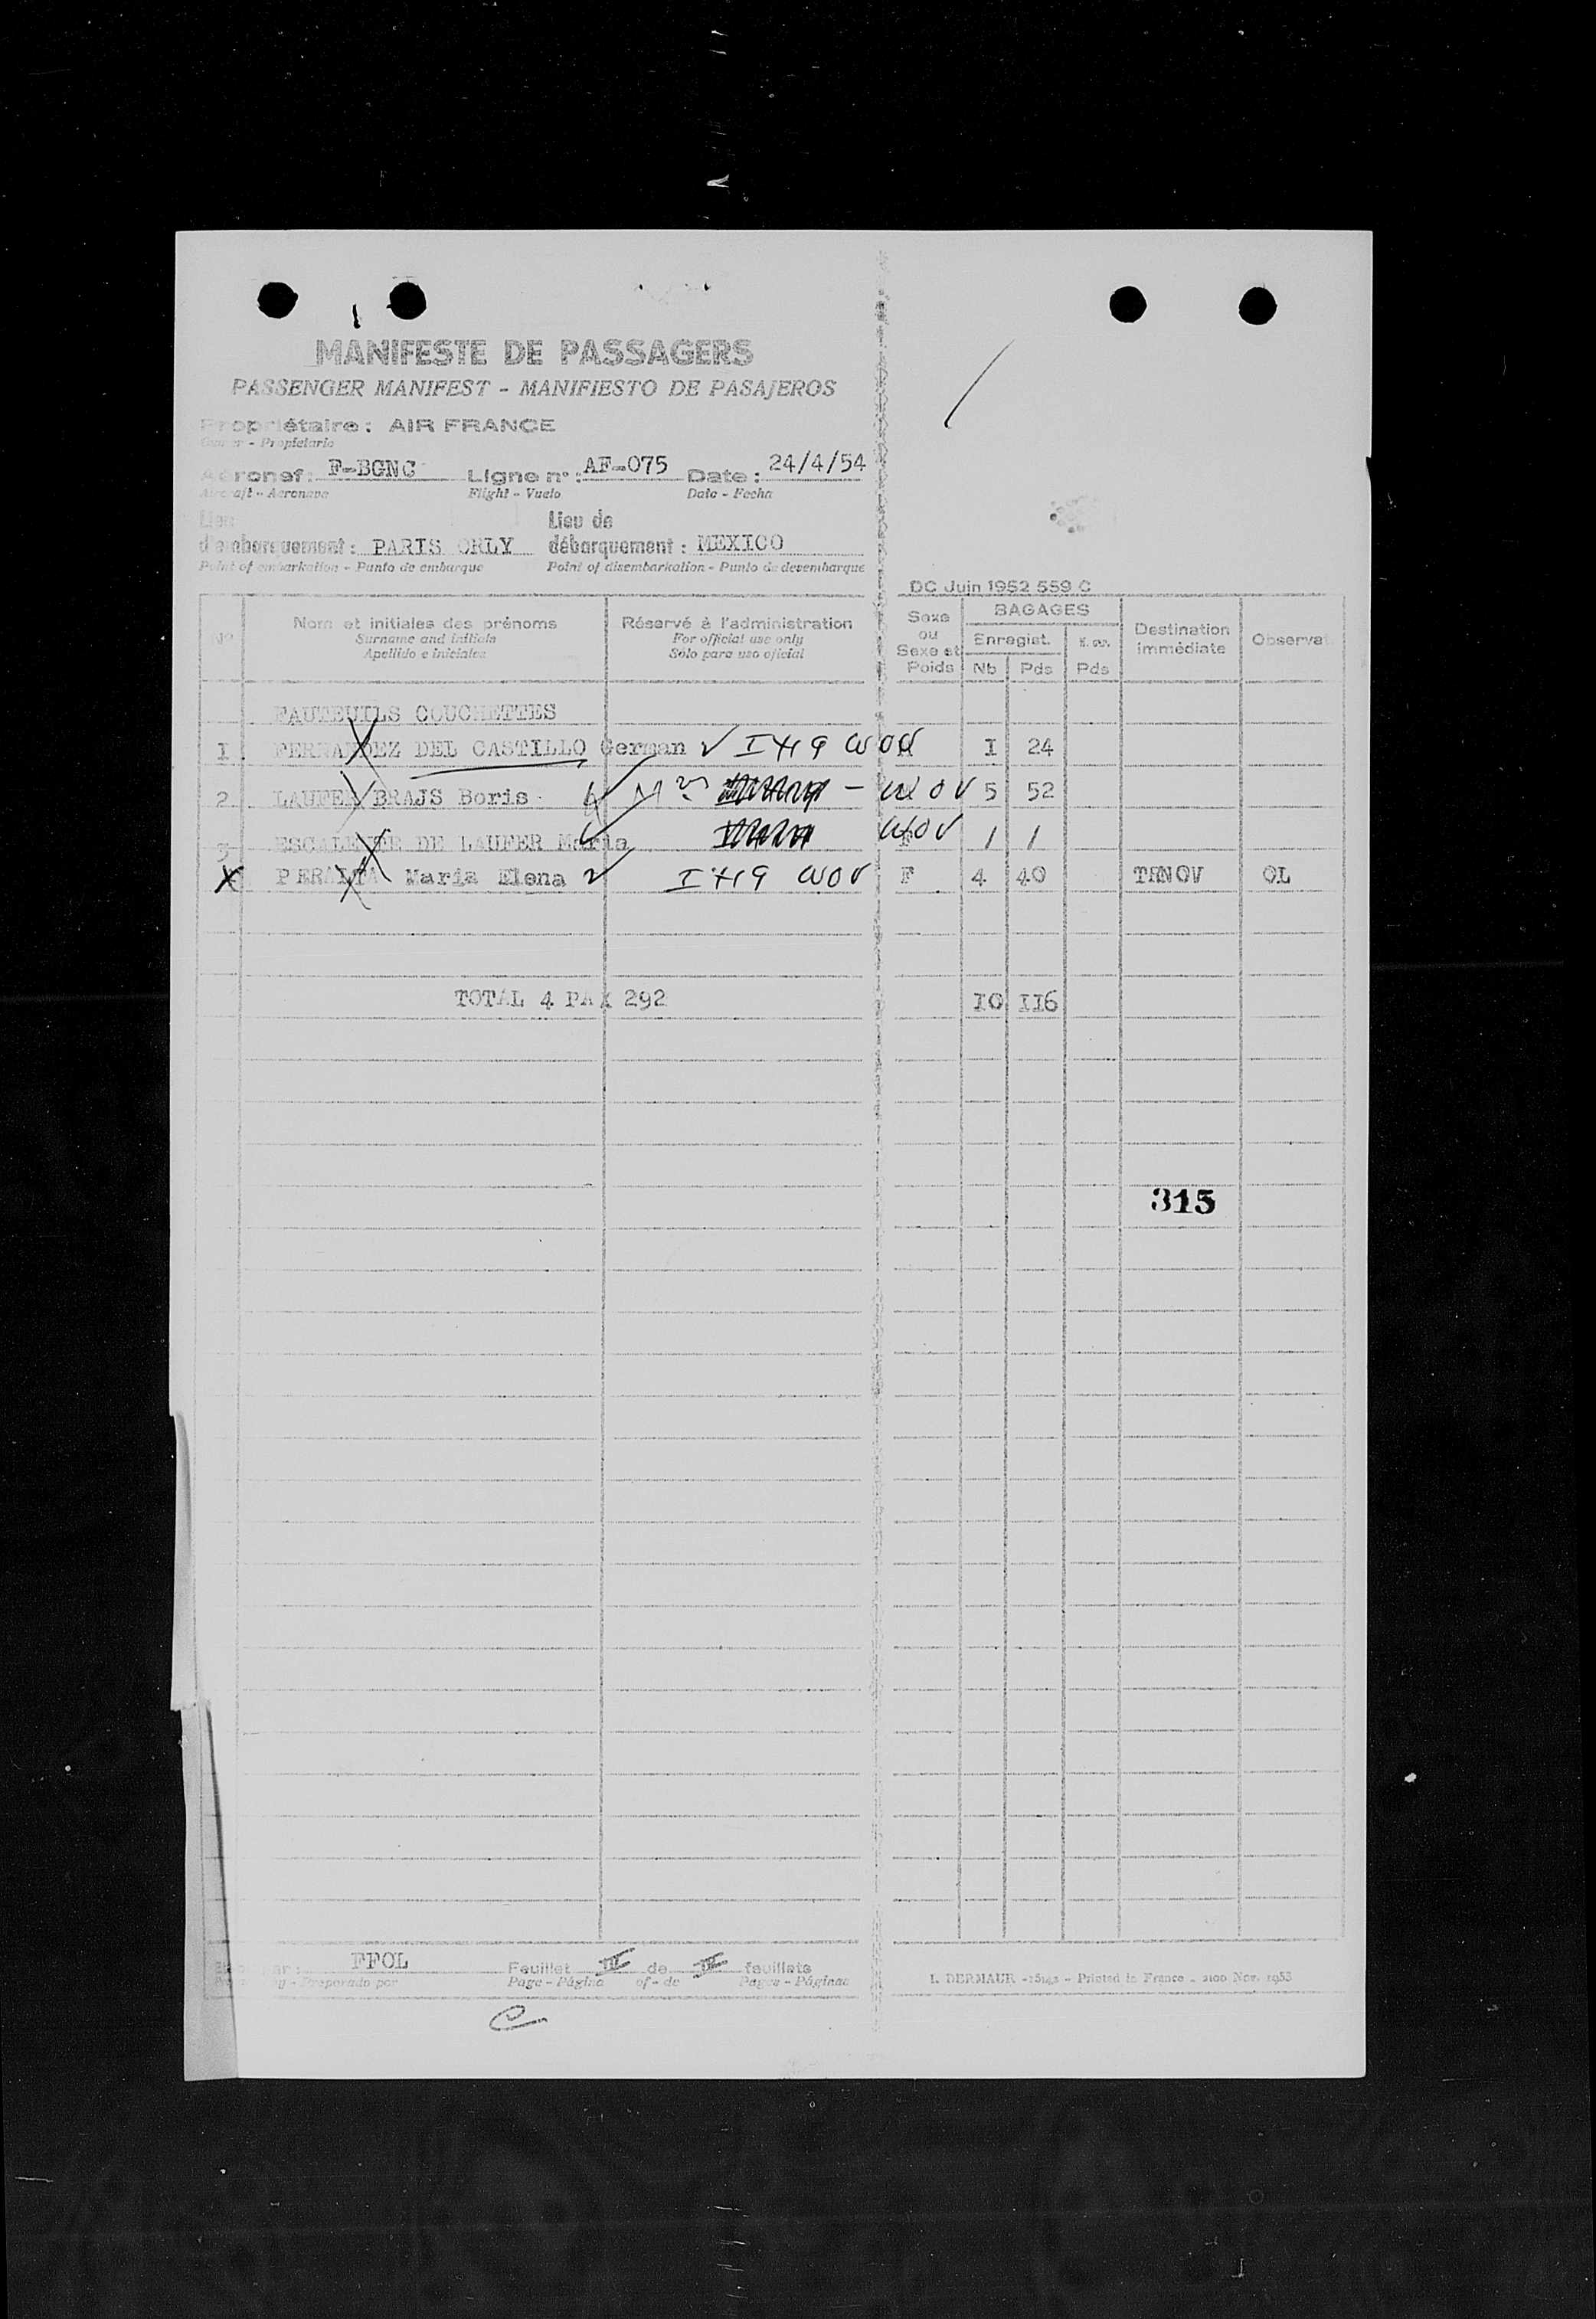 MANIFESTE DE PASSAGERS
PASSENGER MANIFEST - MANIFIESTO DE PASAJEROS
Propriétaire : AIR FRANCE
Owner - Propietario
Aéronef : F-BGNC Ligne n° : AF-075 Date : 24/4/54
Aircraft - Aeronave Flight - Vuelo Date - Fecha
Lieu Lieu de
d'embarquement : PARIS ORLY débarquement : MEXICO
Point of embarkation - Punto de embarque Point of disembarkation - Punto de desembarque
DC Juin 1952 559 C
N° Nom et initiales des prénoms Réservé à l'administration Sexe ou Sexe et Poids BAGAGES Destination immédiate Observat
Surname and initials For official use only Enregist.
Apellido e iniciales Sólo para uso oficial Nb Pds Pds
FAUTEUILS COUCHETTES
I FERNANDEZ DEL CASTILLO German I 24
2 LAUFER BRAJS Boris 5 52
3 ESCALENTE DE LAUFER Maria / /
PERALTA Maria Elena F 4 40 TRNOV OL
TOTAL 4 PAX 292 10 116
315
par : FFOL Feuillet III de III feuillets
by - Preparado por Page - Página of - de Pages - Páginas
L. DERMAUR - Printed in France - Nov. 1953